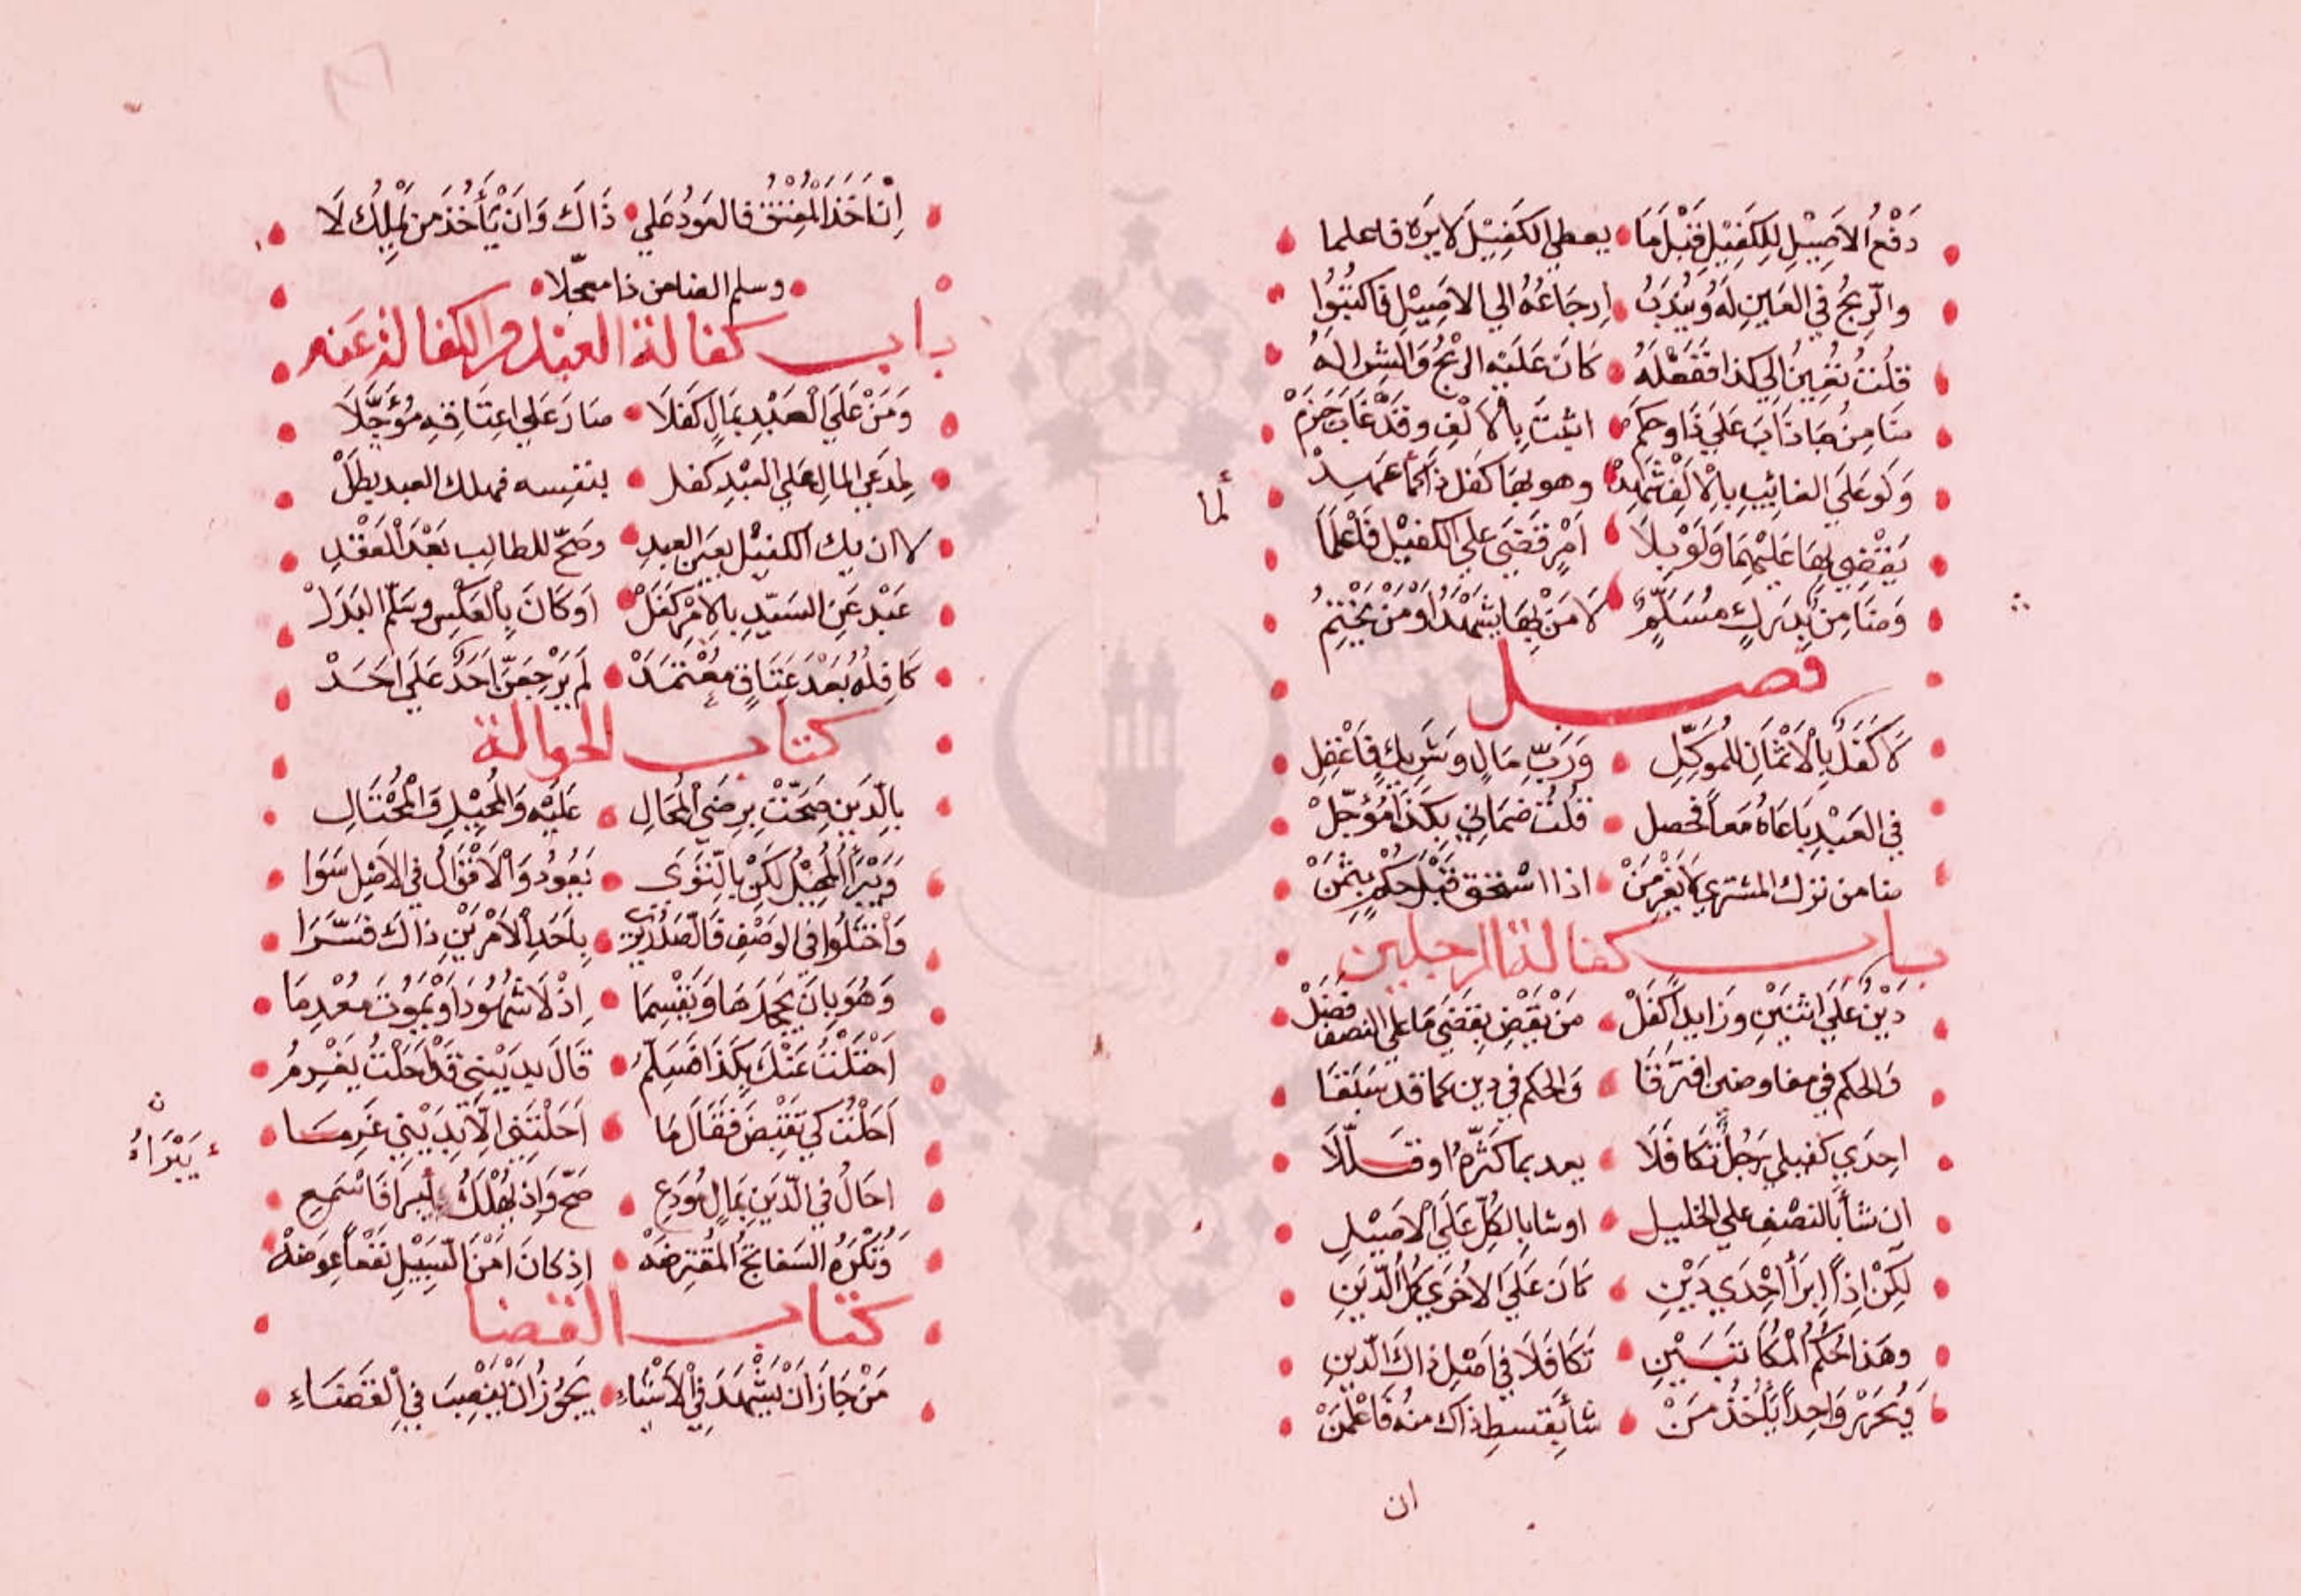 دَفْعُ الاَصِيْلِ لِلكَفِيْلِ قَبْلَ مَا • يعطي الكَفِيْلَ لَا يَرَهْ فاعلما
والرِّبحُ في العَينِ لَهُ وَيُندَبُ • اِرجَاعُهُ الي الاصِيْلِ فَاكتُبُوا
قلتُ تُعِينُ لي كذا فَفَعْلَهُ • كَانَ عَلَيْهِ الرِّبْحُ وَالشرا لَهُ
ضَامِنُ مَا ذَابَ عَلَي ذَا وحكمَ • اثبتَ بِالاَلْفِ وقَدْ غَابَ جَزَمْ
وَلَو عَلَي الغَائِبِ بِالْاَلِفْ شَهِدْ • وهو بهَا كفَل ذَا كما عهد
يَقْضِي بِهَا عَلَيْهِمَا وَلَوْ بِلَا • اَمْرٍ قَضَي علي الكفِيْلِ فَاعْلَمَا
لما
وَضَامِنٌ بِدَرَكٍ مُسَلِّمُ • لَا مَنْ بِهَا يَشْهَدُ اَوْ مَنْ يَخْتِمُ
فصل
لَا كَفَلَ بِالْاَثْمَانِ لِلمُوَكِّلِ • وَرَبِّ مَالٍ وشَرِيكٍ فَاعْقِلِ
في العَبْدِ بَاعَاهُ مَعاً فحصل • قُلْتُ ضمَانِي بِكَذَا مُؤجّلْ
ضامن نزك المشتري لا يَغْرِمَنْ • اذا استحق قَبْلَ حُكْمٍ بِثَمَنْ
باب كفالة الرجلين
دَيْنٌ عَلَي اثنَيْنِ وَزَايداً كَفَلْ • مَنْ يَقْضِ يقَضَي مَا علي النصف فضَلْ
وَالحكم في مفاوضين افترقَا • وَالحكم في دين كما قد سَبَقَا
احِدَي كفيلي رَجُلٍ تَكَافَلَا • يعد بما كَثَّرهُ او قلَّلَا
ان شأ بَالنصْفِ علي الخليل • اوشا بالكُلِّ عَلَي الْاصِيْلِ
لَكِنْ اِذا اِبرَأ احْدَي دَيْنِ • كَانَ عَلَيَ الاُخرَي كُلُّ الدّينِ
وهَذا حُكمُ الْمكَاتَبَيْنِ • تَكَافَلَا في اصْلِ ذاك الدّينِ
وَيُحَرِّرْ وَاحِداً يَأخُذُ مَنْ • شأ بِقسطِ ذاك منهُ فَاعْلَمَنْ
ان
اِن اَخَذ المُعْتَقُ فالعَودُ عَلي • ذَاكَ وَانْ يَأخُذ من يَملِكُ لَا
• وسلم الضامن ذا معجّلا •
باب كفالة العبد والكفالة عنه
وَمَنْ عَلَي الْعَبْدِ بمَالٍ كَفَلَا • صَارَ عَلي اعِتَاقِهِ مُؤَجَّلَا
لمدعي المال علي العَبْدِ كفل • بنفسِه فهلك العبد بطَلْ
لا ان يك الكفيْل بعَين العبدِ • وصَحّ للطالِب بَعْدَ الْعَقْدِ
عَبْد عَنِ السَيّدِ بِالاَمْرِ كَفَلْ • اَوكَانَ بِالْعَكْسِ وسَلّم البَدَلْ
كَافِلُهُ بَعْدَ عَتَاقٍ مُعْتَمَدْ • لَم يَرْجِعَنّ اَحَدٌ عَلَي احَدْ
كتاب الحوالة
بالدَينِ صَحّتْ بِرِضَي الْمحَالِ • عَلَيْه وَالمُحِيْلِ وَالْمُحْتَالِ
وَيَبْرَأُ المُحِيْلُ لَكِنْ بالتّوَي • يَعُودُ وَالْاَقْوَالُ في الاصْلِ سَوَا
وَاختَلُوا في الوَصْفِ فَالصّدْرُ يرَي • بِاَحَدِ الْاَمْرَيْنِ ذاكَ فسّرَا
وَهُوَ بِان يَجحَدَهَا وَيقْسِمَا • اِذْ لَا شُهُودَ اَوْ يَمُوتَ مُعْدِمَا
اَحْتَلْتُ عَنْكَ بِكَذَا فَسَلِّمُ • قَالَ بِدَيْنِي قَدْ اَحَلْتُ يَغْرِمُ
اَحَلْتُ كَي تَقبضَ فَقَالَ مَا • اَحَلْتَنِي الّا بِدَيْنِي غَرِمَا
ن يَبْرَاهُ
احَالُ في الدّينِ بمَالٍ مُودَعِ • صَحّ وَاِذ يُهْلَكُ ابرا فَاسْمَعِ
وَتُكْرَهُ السَفاتجُ المُقْتَرِضَهْ • اِذ كانَ اَمْنَ السَّبِيْلِ نَفْعاً عِوَضَهْ
كتاب القضا
مَنْ جَازَ انْ يَشْهَدَ في الْاَشْيَاءِ • يَجُوزُ انْ يُنْصَبَ في الْقَضَاءِ